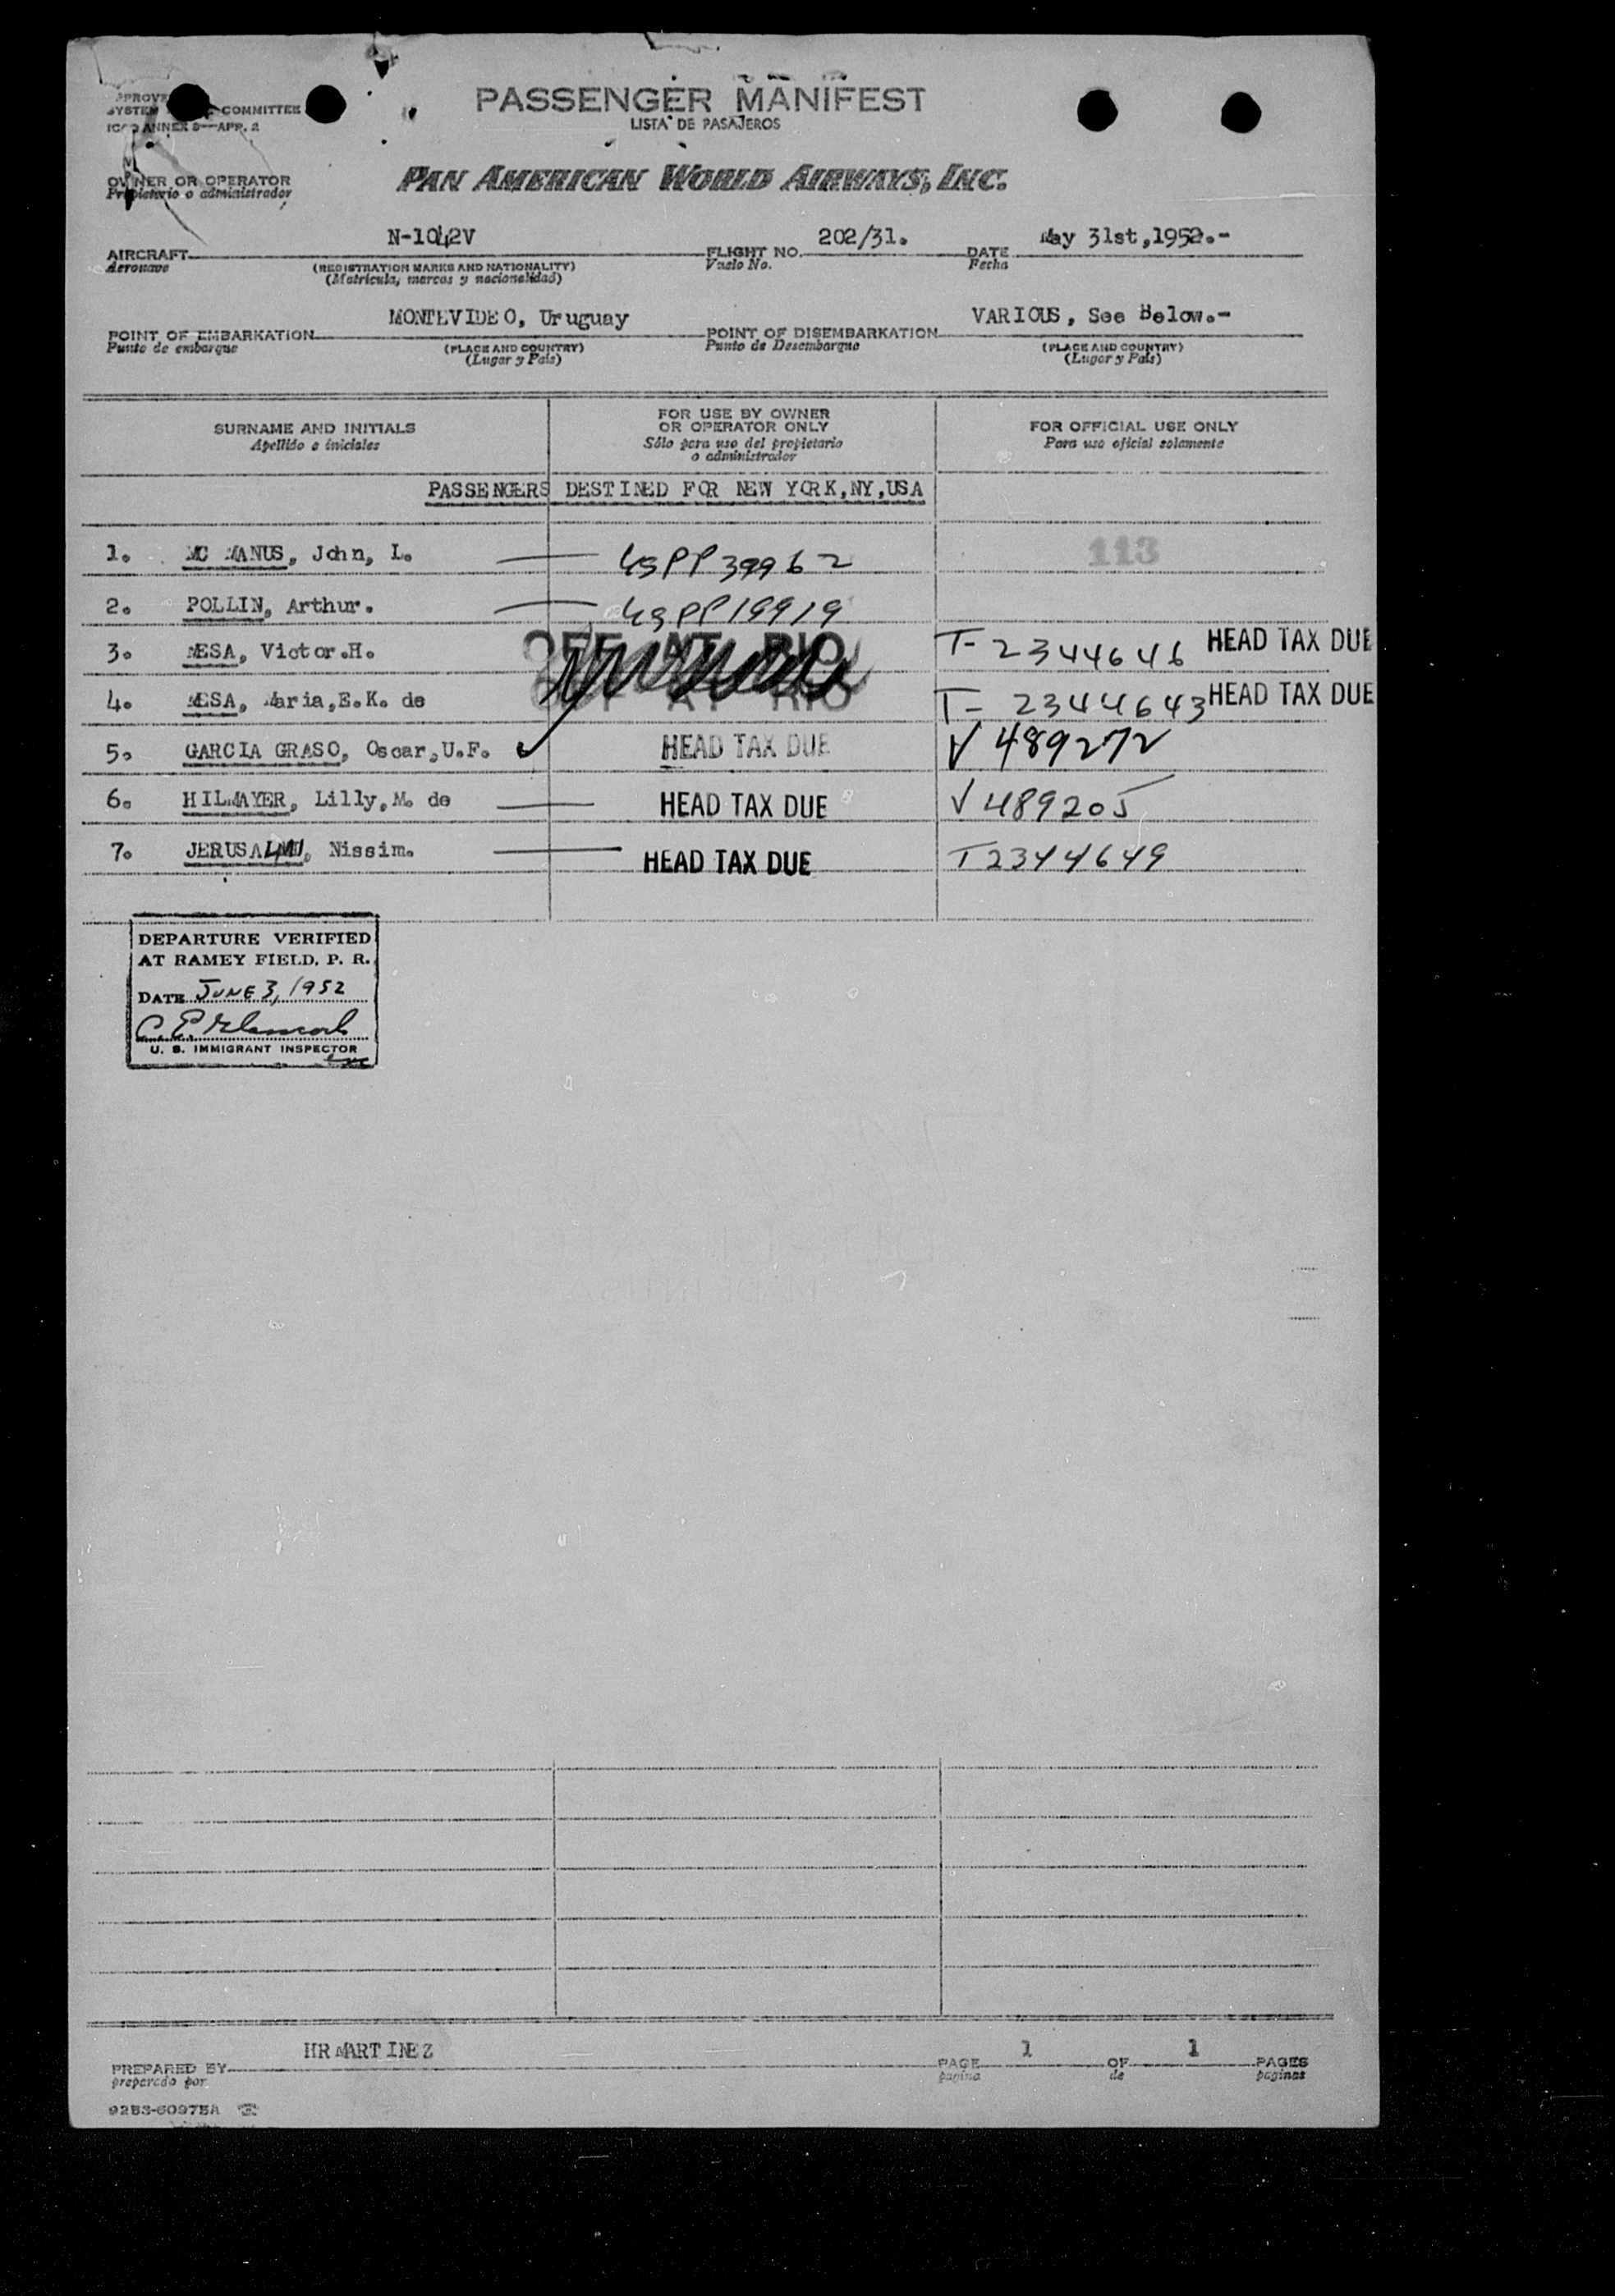 PASSENGER MANIFEST
LISTA DE PASAJEROS
COMMITTEE
ANNEX 9—APP. 2
OWNER OR OPERATOR
Propietario o administrador
PAN AMERICAN WORLD AIRWAYS, INC.
AIRCRAFT N-1042V FLIGHT NO. 202/31. DATE May 31st,1952.-
Aeronave (REGISTRATION MARKS AND NATIONALITY) Vuelo No. Fecha
(Matrícula, marcas y nacionalidad)
POINT OF EMBARKATION MONTEVIDEO, Uruguay POINT OF DISEMBARKATION VARIOUS, See Below.-
Punto de embarque (PLACE AND COUNTRY) Punto de Desembarque (PLACE AND COUNTRY)
(Lugar y País) (Lugar y País)
SURNAME AND INITIALS
Apellido e iniciales
FOR USE BY OWNER
OR OPERATOR ONLY
Sólo para uso del propietario
o administrador
FOR OFFICIAL USE ONLY
Para uso oficial solamente
PASSENGERS DESTINED FOR NEW YORK,NY,USA
1. MC MANUS, John, L. USPP39962 113
2. POLLIN, Arthur. USPP19919
3. MESA, Victor.H. OFF AT RIO T-2344646 HEAD TAX DUE
4. MESA, Maria,E.K. de OFF AT RIO T-2344643 HEAD TAX DUE
5. GARCIA GRASO, Oscar,U.F. HEAD TAX DUE V 489272
6. HILMAYER, Lilly,M. de HEAD TAX DUE V 489205
7. JERUSALMI, Nissim. HEAD TAX DUE T2344649
DEPARTURE VERIFIED
AT RAMEY FIELD, P. R.
DATE JUNE 3, 1952
U. S. IMMIGRANT INSPECTOR
PREPARED BY HRMARTINEZ PAGE 1 OF 1 PAGES
preparado por pagina de paginas